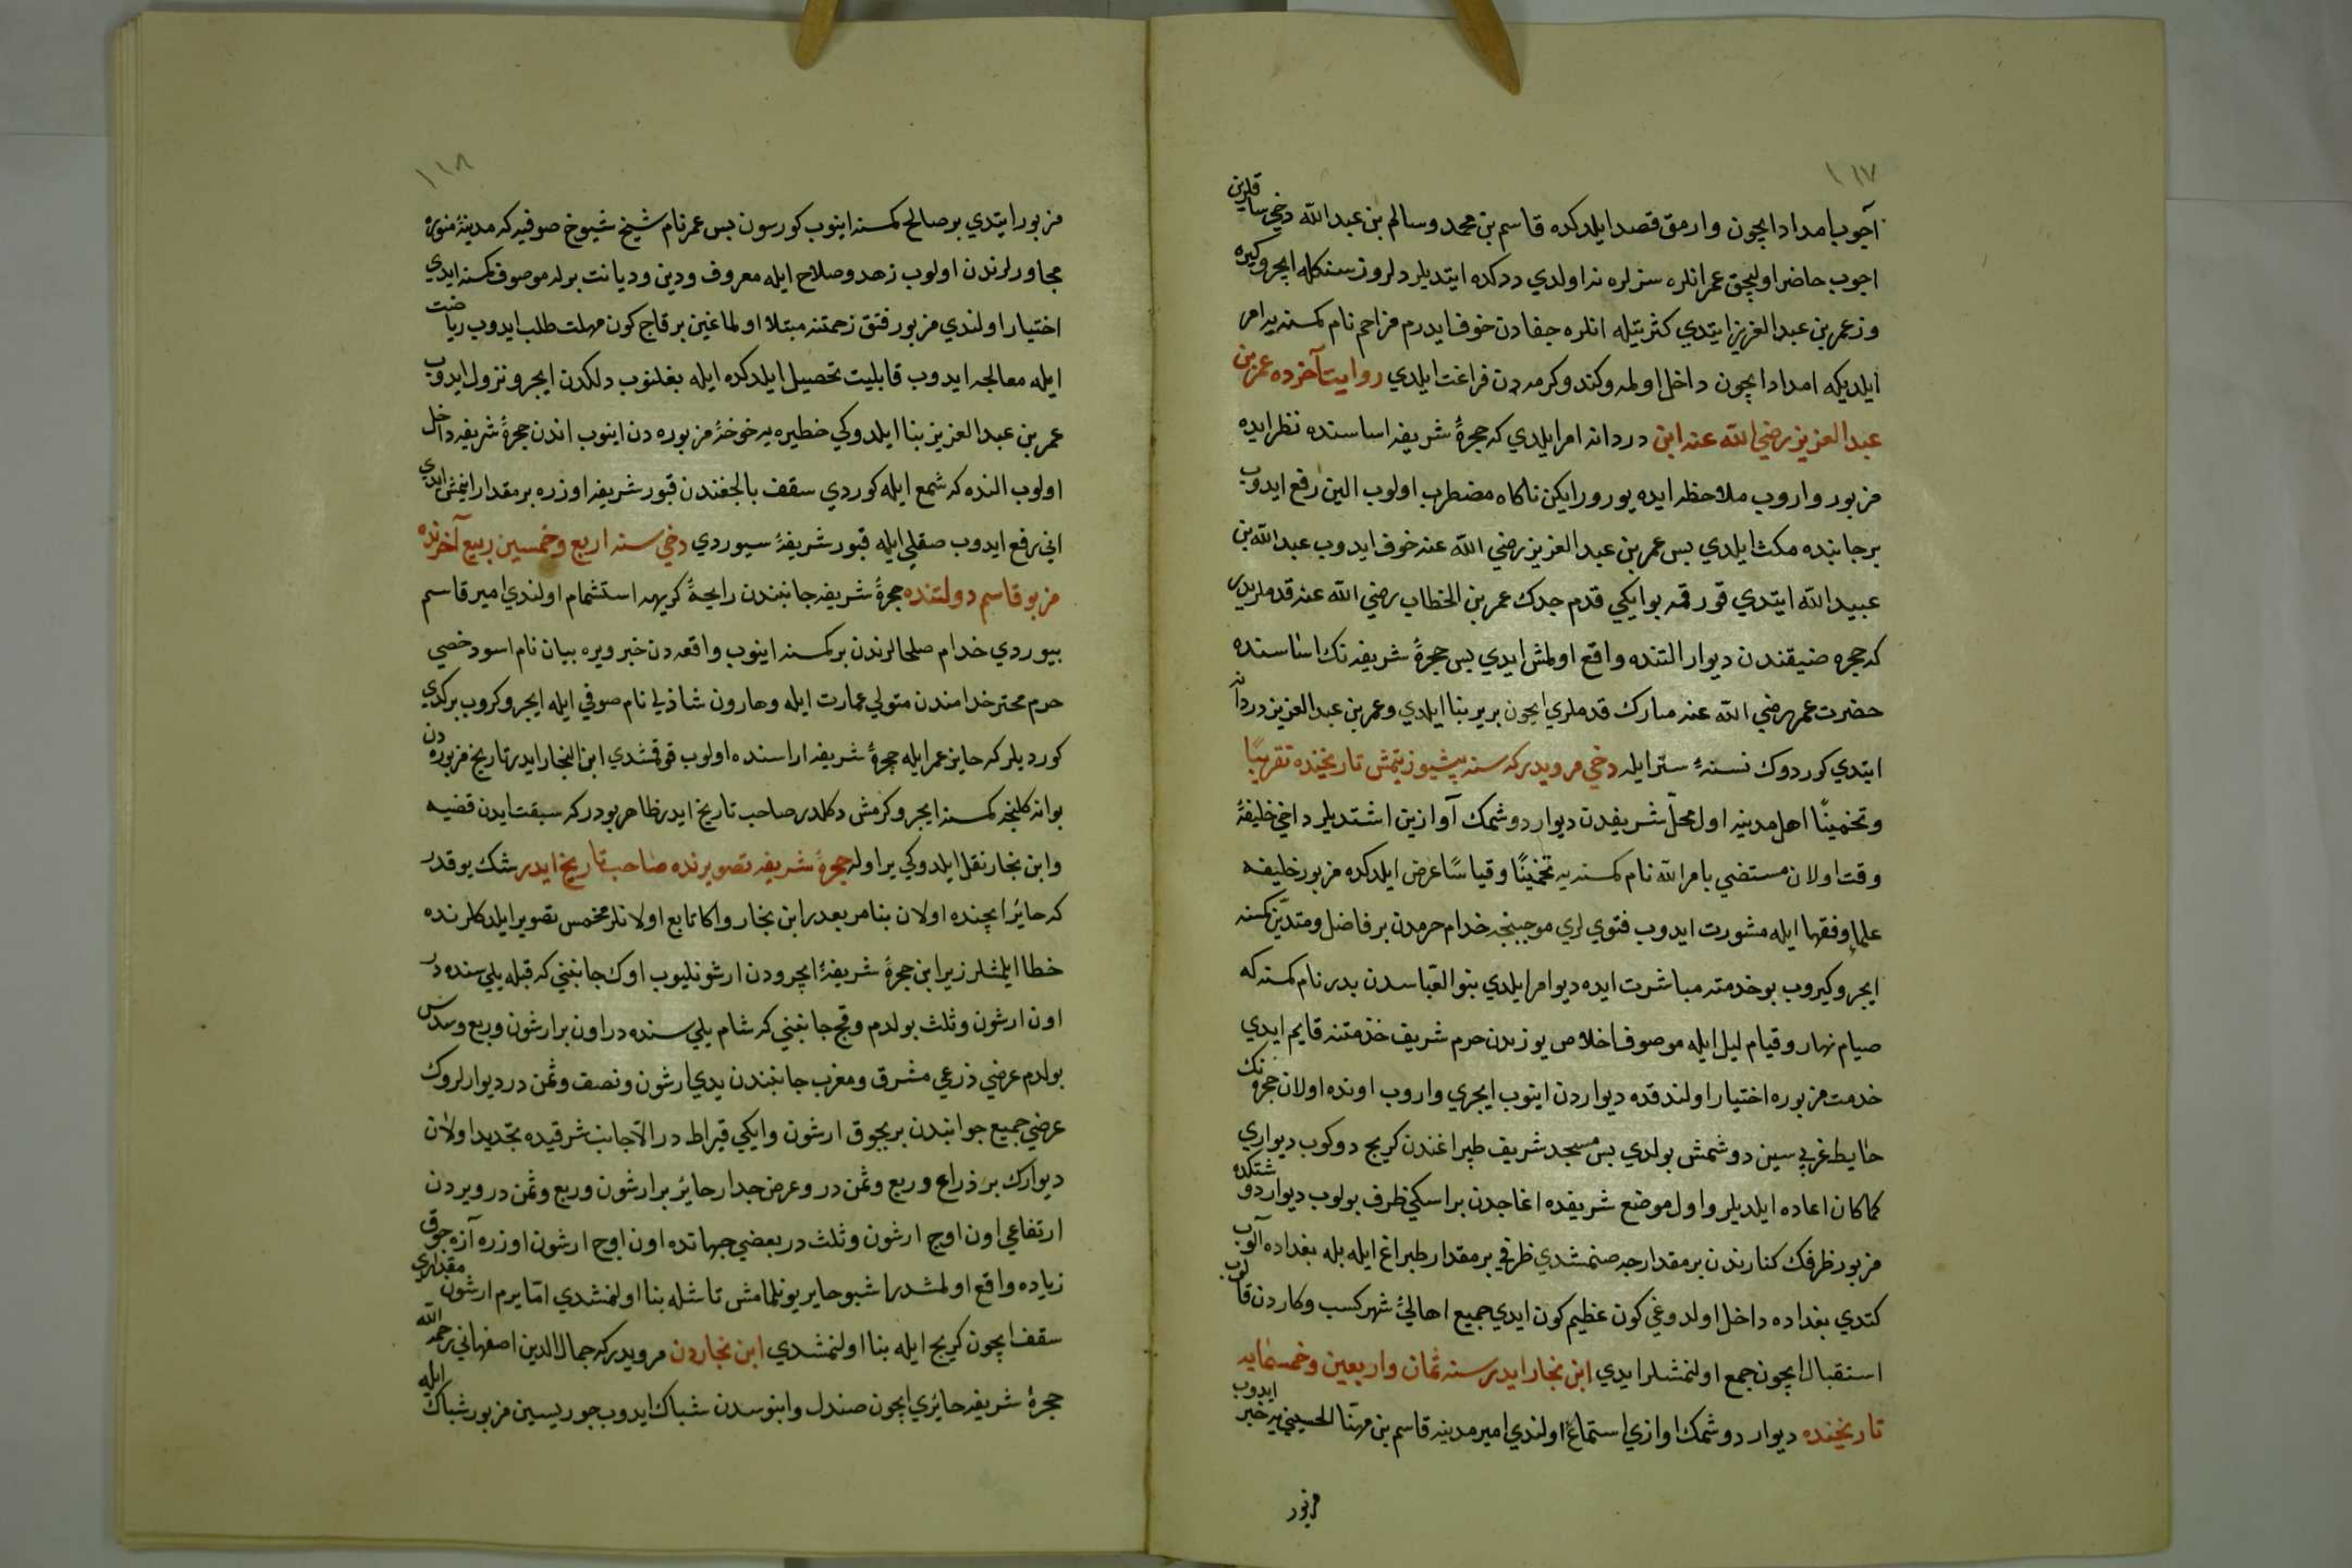 ١١٧
آچوب امداد ایچون وارمق قصد ایلدکده قاسم بن محمد وسالم بن عبد الله دخی سایرین
اچوب حاضر اولیجق عمر انلره سزلره نه اولدی ددکده ایتدیلر دلروز سنکله ایچرو کیره
وز عمر بن عبد العزیز ایتدی کثرتیله انلره جفادن خوف ایدرم مزاحم نام کمسنه یه امر
ایلدیکه امداد ایچون داخل اوله وکندو کرمه دن فراغت ایلدی روایت آخرده عمر بن
عبد العزیز رضی الله عنه ابن دردانه امر ایلدی که حجرۀ شریفه اساسنده نظر ایده
مزبور واروب ملاحظه ایده یورورایکن ناکاه مضطرب اولوب الین رفع ایدوب
بر جانبده مکث ایلدی بس عمر بن عبد العزیز رضی الله عنه خوف ایدوب عبد الله بن
عبید الله ایتدی قورقمه بو ایکی قدم جدك عمر بن الخطاب رضی الله عنه قدملریدر
که حجره ضیقندن دیوار التنده واقع اولمش ایدی بس حجرۀ شریفه نك اساسنده
حضرت عمر رضی الله عنه مبارك قدملری ایچون بر یر بنا ایلدی وعمر بن عبد العزیز دردانه
ایتدی کوردوك نسنهٔ ستر ایله دخی مرویدر که سنه بشیوز یتمش تاریخنده تقریبًا
وتخمینًا اهل مدینه اول محلّ شریفدن دیوار دوشمك آوازین اشتدیلر داخی خلیفۀ
وقت اولان مستضی بامر الله نام کمسنه یه تخمینًا وقیاسًا عرض ایلدکده مزبور خلیفه
علما وفقها ایله مشورت ایدوب فتوی لری موجبنجه خدام حرمدن بر فاضل ومتدیّن کمسنه
ایچرو کیروب بو خدمته مباشرت ایده دیو امر ایلدی بنو العباسدن بدر نام کمسنه که
صیام نهار وقیام لیل ایله موصوف اخلاص یوزندن حرم شریف خدمتنه قایم ایدی
خدمت مزبوره اختیار اولندقده دیواردن اینوب ایچری واروب اونده اولان حجره نك
حایط غربی سین دوشمش بولدی بس مسجد شریف طپراغندن کریج دوکوب دیواری
کما کان اعاده ایلدیلر واول موضع شریفده اغاجدن بر اسکی ظرف بولوب دیوار دوشتکده
مزبور ظرفك کنارندن بر مقدارجه صنمشدی ظرفی بر مقدار طپراغ ایله بله بغداده آلوب
کتدی بغداده داخل اولدوغی کون عظیم کون ایدی جمیع اهالیٔ شهر کسب وکاردن قالوب
استقبال ایچون جمع اولنمشلر ایدی ابن نجار ایدر سنه ثمان واربعین وخمسمایه
تاریخنده دیوار دوشمك اوازی استماع اولندی امیر مدینه قاسم بن مهنّا الحسینی یه خبر ایدوب
مزبور
١١٨
مزبور ایتدی بر صالح کمسنه اینوب کورسون بس عمر نام شیخ شیوخ صوفیه که مدینۀ منوره
مجاورلرندن اولوب زهد وصلاح ایله معروف ودین ودیانت برله موصوف کمسنه ایدی
اختیار اولندی مزبور فتق زحمتنه مبتلا اولماغین بر قاج کون مهلت طلب ایدوب ریاضت
ایله معالجه ایدوب قابلیت تحصیل ایلدکده ایله بغلنوب دلکدن ایچرو نزول ایدوب
عمر بن عبد العزیز بنا ایلدوکی خطیره یه خوخۀ مزبوره دن اینوب اندن حجرۀ شریفه داخل
اولوب النده که شمع ایله کوردی سقف بالچغندن قبور شریفه اوزره بر مقدار اینمش ایدی
انی رفع ایدوب صقلی ایله قبور شریفۀ سیوردی دخی سنه اربع وخمسین ربیع آخرنده
مزبو قاسم دولتنده حجرۀ شریفه جانبندن رایحۀ کریهه استشمام اولندی امیر قاسم
بیوردی خدام صلحالرندن بر کمسنه اینوب واقعه دن خبر ویره بیان نام اسود خصی
حرم محترخدامندن متولی عمارت ایله وهارون شاذلی نام صوفی ایله ایچرو کروب بر کدی
کوردیلر که حایز عمر ایله حجرۀ شریفه اراسنده اولوب قوقمشدی ابن النجار ایدر تاریخ مزبوره دن
بو انه کلینجه کمسنه ایچرو کرمش دکلدر صاحب تاریخ ایدر ظاهر بودر که سبقت ایدن قضیه
وابن نجار نقل ایلدوکی بر اوله حجرۀ شریفه تصویرنده صاحب تاریخ ایدر شك یوقدر
که حایز ایچنده اولان بنا مربعدر ابن نجار واکا تابع اولانلر مخمس تصویر ایلدکلرنده
خطا ایلمشلر زیرا بن حجرۀ شریفۀ ایچرودن ارشونلیوب اوك جانبنی که قبله یلی سنده در
اون ارشون وثلث بولدم وقچ جانبنی که شام یلی سنده در اون بر ارشون وربع وسدس
بولدم عرضی ذرعی مشرق ومغرب جانبندن یدی ارشون ونصف وثمن در دیوارلروك
عرضی جمیع جوانبدن بر بچوق ارشون وایکی قیراط در الآ جانب شرقیده تجدید اولان
دیوارك بر ذراع وربع وثمن در وعرض جدار حایز بر ارشون وربع وثمن در ویردن
ارتفاعی اون اوچ ارشون وثلث در بعضی جهاتده اون اوج ارشون اوزره آزه جوق
زیاده واقع اولمشدر اشبو حایز یونلمامش تاشله بنا اولنمشدی امّا یرم ارشون مقداری
سقف ایچون کریج ایله بنا اولنمشدی ابن نجاردن مرویدر که جمال الدین اصفهانی رحمه الله
حجرۀ شریفه حایزی ایچون صندل وابنوسدن شباك ایدوب جوریسین مزبور شباك ایله